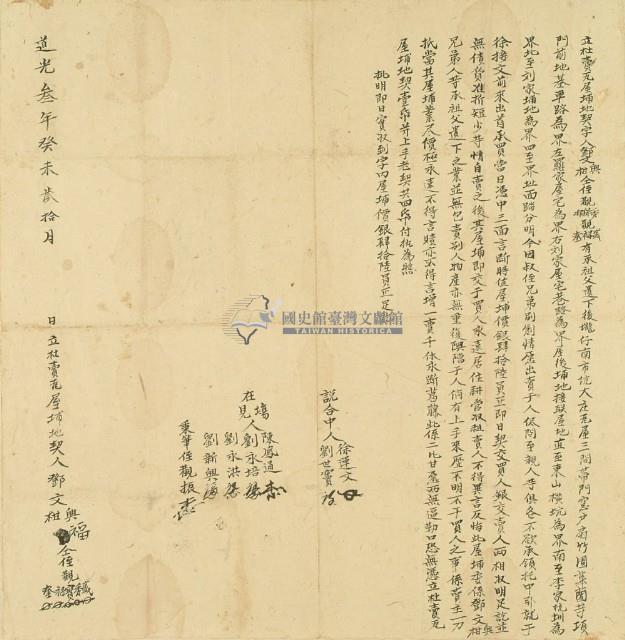 立杜賣瓦屋埔地契字人鄧文興相仝侄觀有承祖父遺下後壠仔南市坑大庄瓦屋三間帶門窓戶扇竹圍菜園等項
門前地基車路為界左羅家屋宅為界右刘家屋宅巷路為界屋後埔地接跟屋地直至東山橫坑為界南至李家坑圳為
界北至刘家埔地為界四至界址面踏分明今因叔侄兄弟別創情愿出賣于人儘問至親人等俱各不欲承領托中引就于
徐接文前來出首承買當日憑中三面言斷時值屋埔價銀肆拾陸員正即日契交買人銀交賣人兩相收明足訖並
無債貨准折短少等情自賣之後其屋埔即交于買人永遠居住耕管收租賣人不得異言反悔此屋埔委係鄧文興相
兄弟人等承祖父遺下之業並無包賣別人物產亦無重復典賣于人倘有上手來歷不明不干買人之事係賣主一力
抵當其屋埔業足價極永遠不得言贖亦不得言增一賣千休永斷葛藤此係二比甘愿兩無逼勒口恐無憑立杜賣瓦
屋埔地契壹帋并上手老契共四帋付执為照
批明即日實收到字內屋埔價銀肆拾陸員正足訖
國史館臺灣文獻館
TAIWAN HISTORICA
說合中人 徐蓮文 劉世寶
在塲見人 陳鳳通 劉永培 劉永洪 劉新興
秉筆侄觀振
道光叁年癸未貳拾月 日立杜賣瓦屋埔地契人鄧文興相福仝侄觀